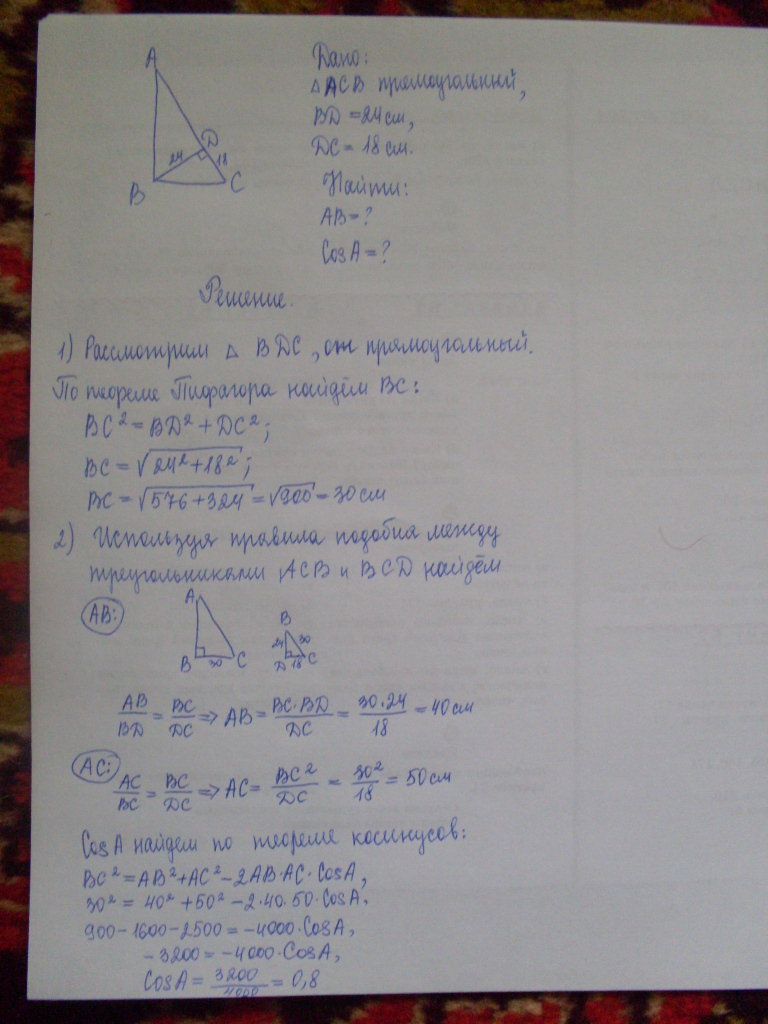 A
D
24
18
B
C
Дано:
△ ACB прямоугольный,
BD = 24 см,
DC = 18 см.
Найти:
AB = ?
CosA = ?
Решение.
1) Рассмотрим △ BDC, он прямоугольный.
По теореме Пифагора найдём BC:
BC² = BD² + DC²;
BC = √(24² + 18²);
BC = √(576 + 324) = √900 = 30 см
2) Используя правила подобия между
треугольниками ACB и BCD найдём
AB:
A
B 30 C
B
24 30
D 18 C
AB/BD = BC/DC ⇒ AB = BC·BD/DC = 30·24/18 = 40 см
AC:
AC/BC = BC/DC ⇒ AC = BC²/DC = 30²/18 = 50 см
CosA найдем по теореме косинусов:
BC² = AB² + AC² - 2AB·AC·CosA,
30² = 40² + 50² - 2·40·50·CosA.
900 - 1600 - 2500 = -4000·CosA,
-3200 = -4000·CosA,
CosA = 3200/4000 = 0,8